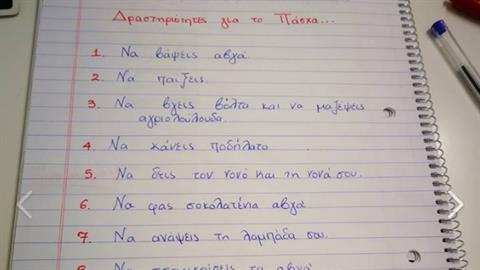 Δραστηριότητες για το Πάσχα...
1. Να βάψεις αβγά
2. Να παίξεις.
3. Να βγεις βόλτα και να μαζέψεις
αγριολούλουδα.
4. Να κάνεις ποδήλατο
5. Να δεις τον νονό και τη νονά σου.
6. Να φας σοκολατένια αβγά.
7. Να ανάψεις τη λαμπάδα σου.
8. Να τσουγκρίσεις τα αβγά